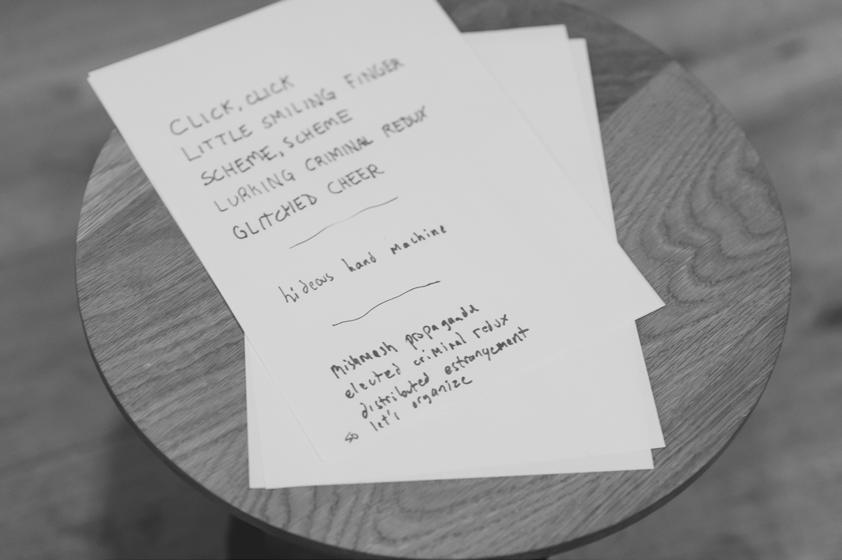 CLICK, CLICK
LITTLE SMILING FINGER
SCHEME, SCHEME
LURKING CRIMINAL REDUX
GLITCHED CHEER
hideous hand machine
Mishmash propaganda
elected criminal redux
distributed estrangement
so let's organize